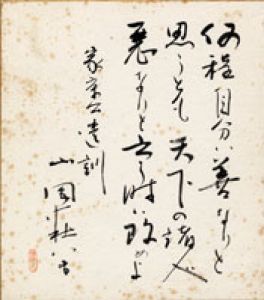 何程自分は善なりと
思うとも天下の諸人
悪なりと云う時は改めよ
家康公遺訓
山岡荘八書